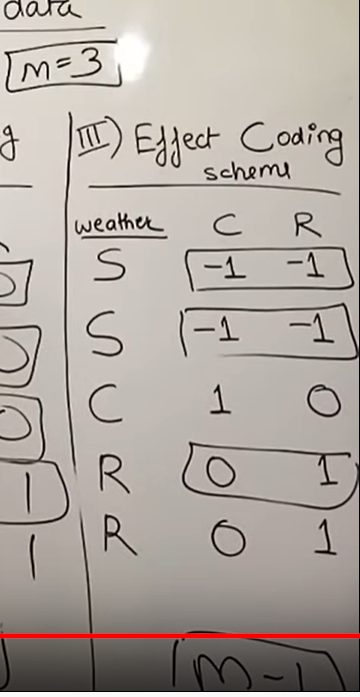 data
m=3
g
III) Effect Coding
scheme
weather C R
S -1 -1
0
S -1 -1
0
C 1 0
0
R 0 1
1
R 0 1
1
m-1